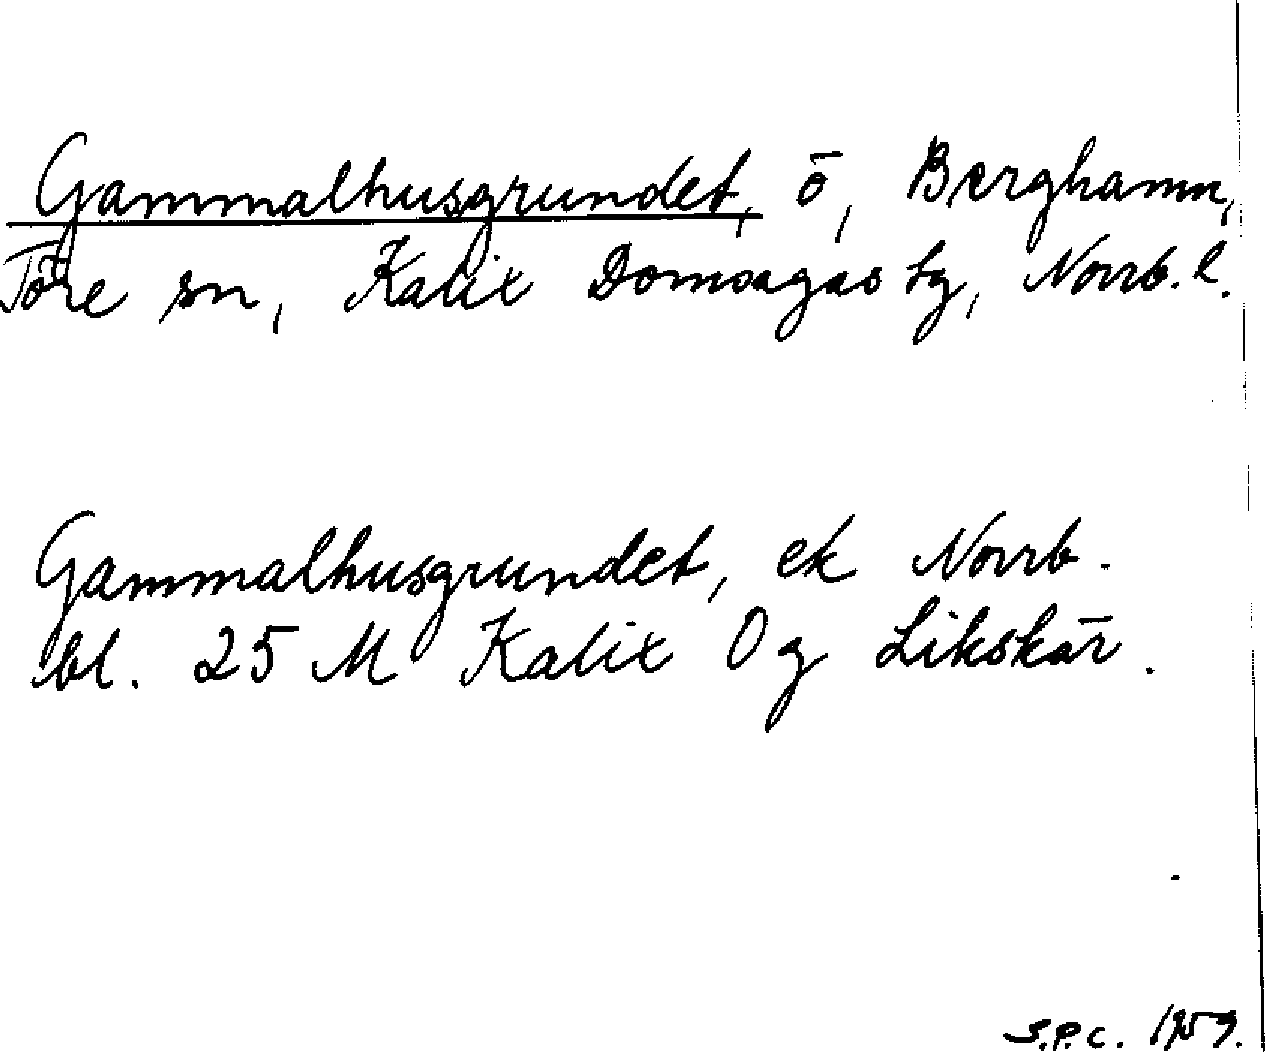 Gammalhusgrundet, ö, Berghamn,
Töre sn, Kalix Domsagas tg, Norrb. l.
Gammalhusgrundet, ek Norrb.
bl. 25 M Kalix Og Likskär.
S.P.C. 1959.